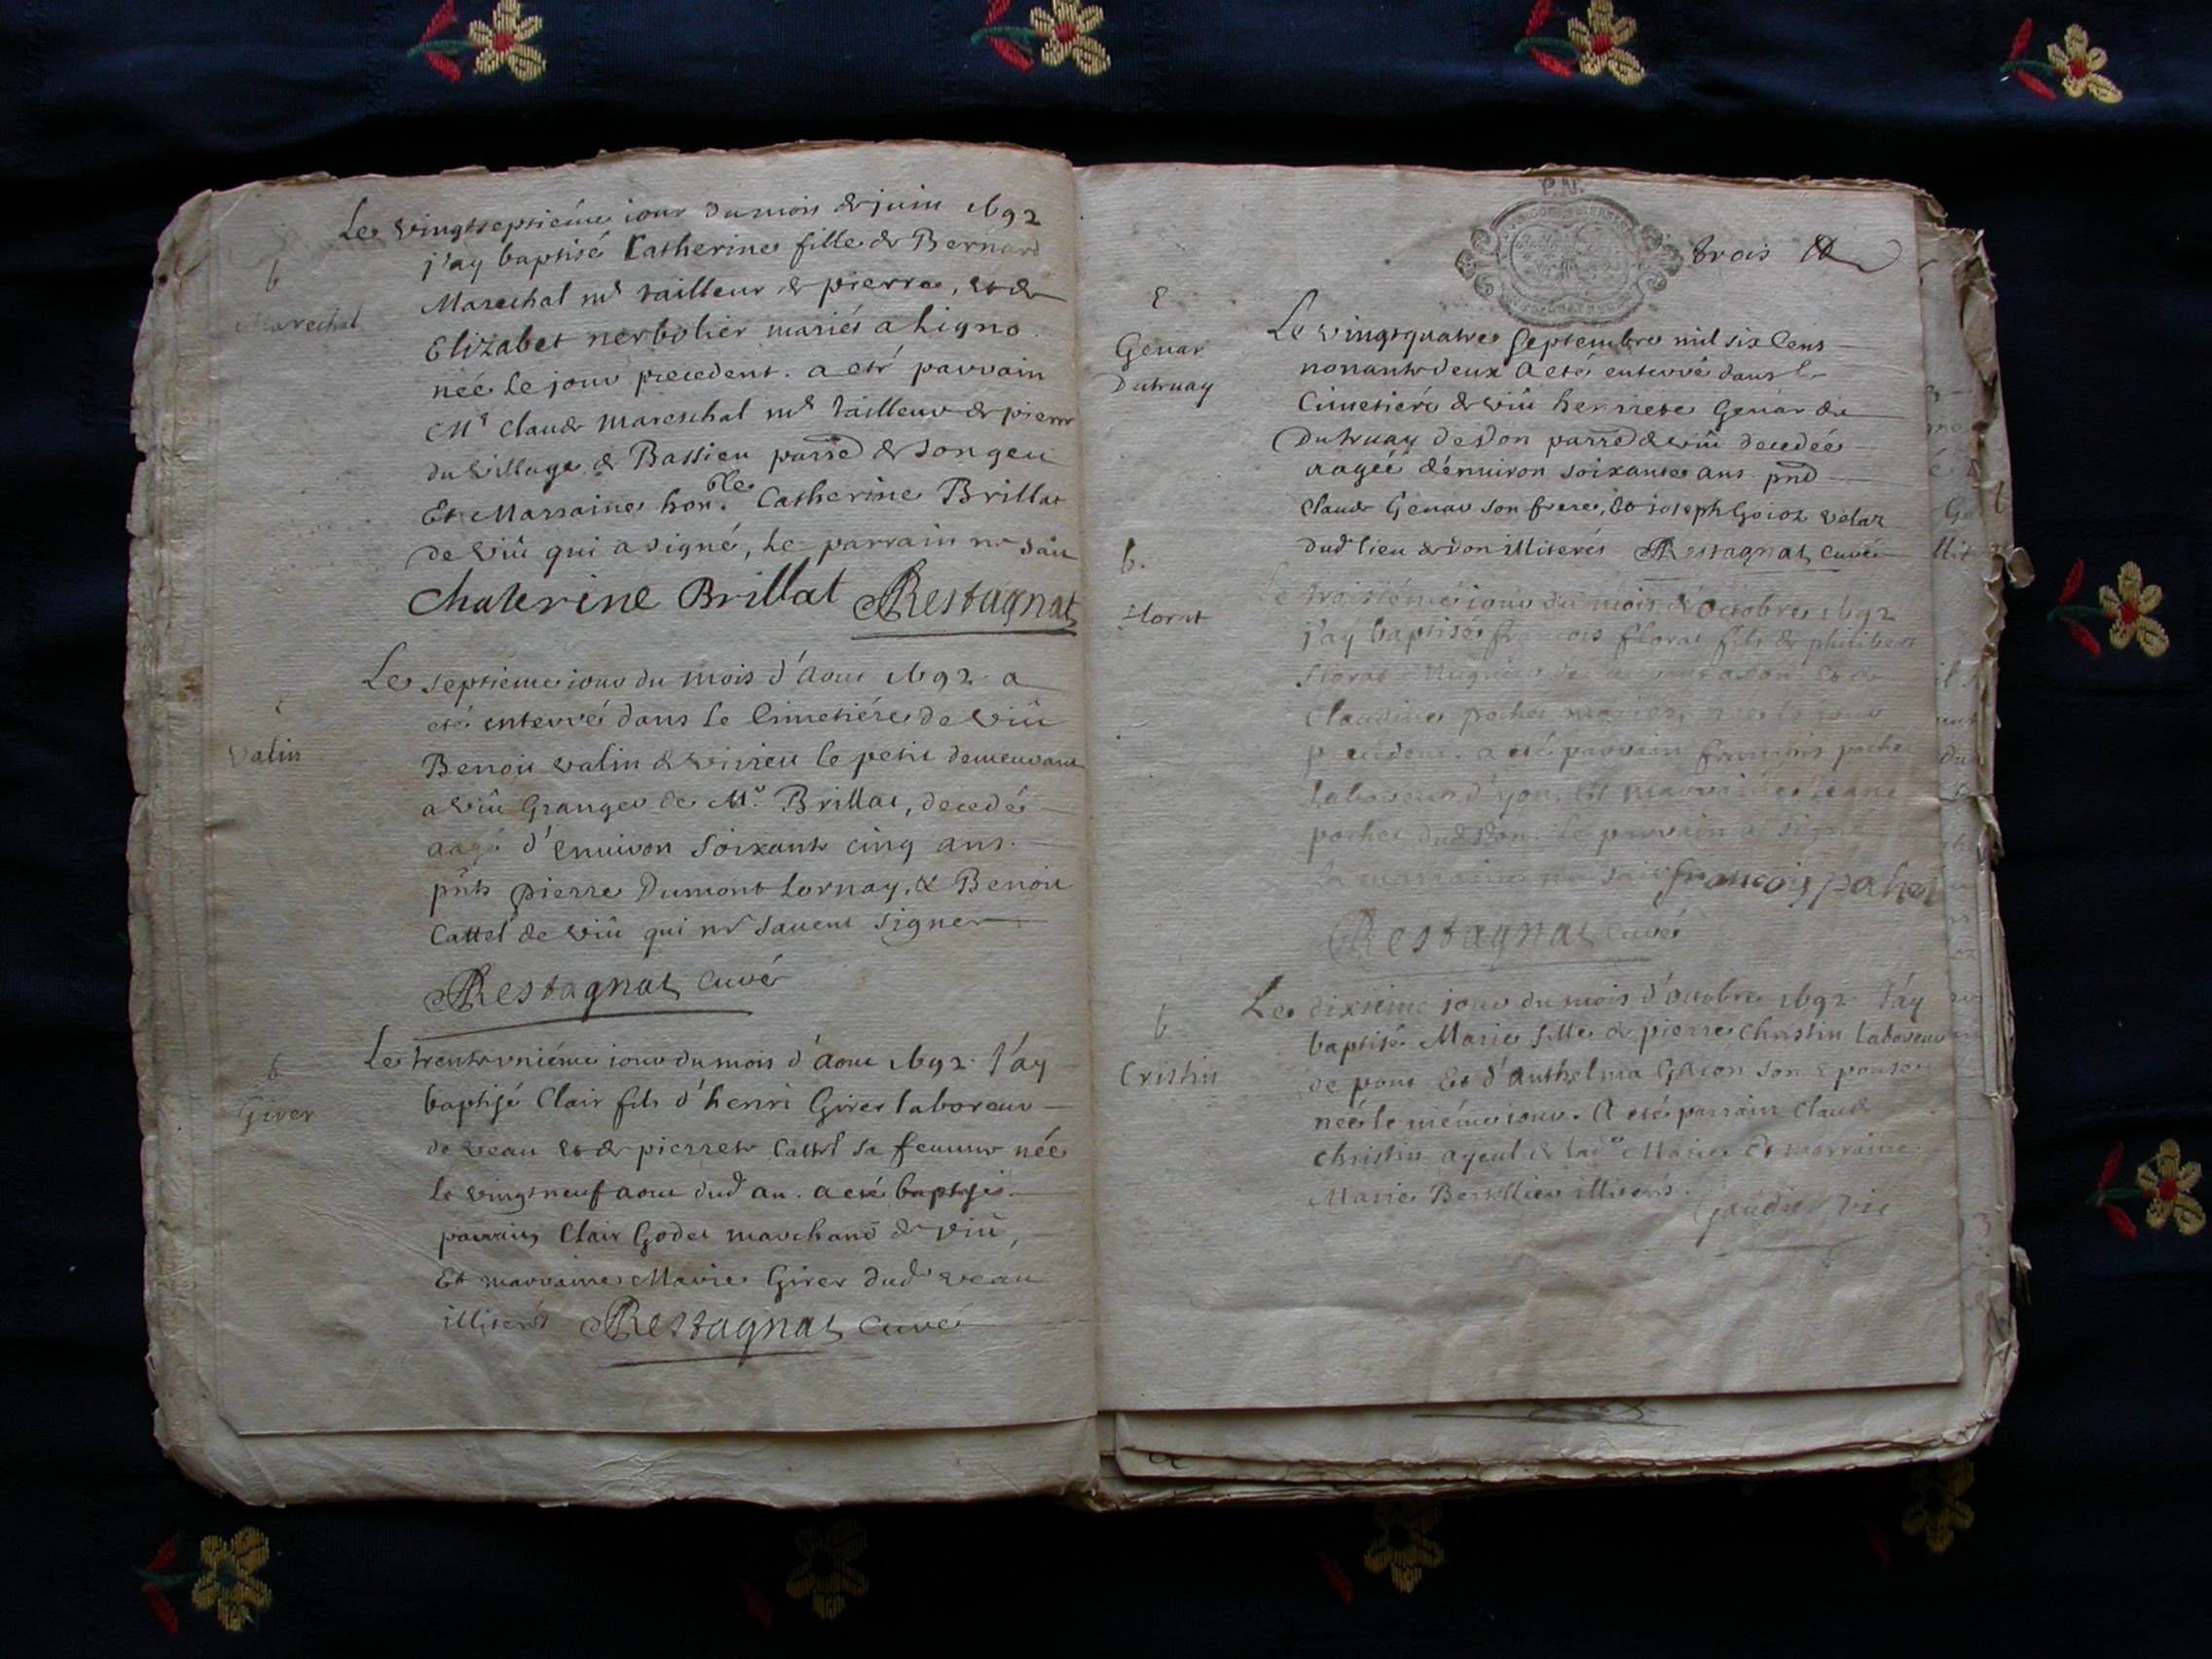 Le vingtseptiéme iour du mois de juin 1692
b
j'ay baptisé Catherine fille de Bernard
Mareshal
Mareschal md tailleur de pierre, et de
Elizabet nerbolier mariés a Ligno
née le jour precedent. a eté parrain
Mr Claude Mareschal md tailleur de pierre
du village de Bassieu parred de Songeu
Et Marraine honble Catherine Brillat
de Viû qui a signé, le parrain ne sait
Chaterine Brillat Restagnat
Le septieme iour du mois d'Aout 1692. a
eté enterré dans le Cimetiére de Viû
Valin
Benoit Valin de Virieu le petit demeurant
a Viû Granger de Mr. Brillat, decedé
aagé d'enuiron soixante cinq ans.
pnts pierre Dumont Lornay, & Benoit
Cattel de Viû qui ne sauent signer
Restagnat Curé
Le trente vniéme iour du mois d'Aout 1692. J'ay
b
Girer
baptisé Clair fils d'henri Girer laboreur
de Veau et de pierrete Cattel sa femme née
le vingt neuf aout dud an. a eté baptisé
parrain Clair Godet marchand de Viû,
Et marraine Marie Girer dud Veau
illiterés Restagnat Curé
P.N.
trois
Genar
Dutruay
Le vingtquatre Septembre mil six Cens
nonante deux a eté enterré dans le
Cimetiére de Viû henriete Genar du
Dutruay de Don parred de Viû decedée
aagéé d'enuiron soixante ans pnd
Claude Genar son frere, et ioseph Goioz Velaz
dud lieu de Don illiterés Restagnat Curé
b.
Florat
Le troisiéme iour du mois d'Octobre 1692
j'ay baptisé françois florat fils de philibert
florat
Claudine pochet mariés, né le jour
precedent. a eté parrain françois pochet
laboreur d'yon, Et marraine
pochet dud Don. Le parrain a signé
la marraine ne sait françois pochet
Restagnat Curé
b
Cristin
Le dixiéme jour du mois d'Octobre 1692. J'ay
baptisé Marie fille de pierre Christin laboreur
de pont Et d'Anthelma Goion son Epouse
née le méme iour. A eté parrain Claude
Christin ayeul de lade Marie Et marraine
Marie illiterés.
Gaudier vic